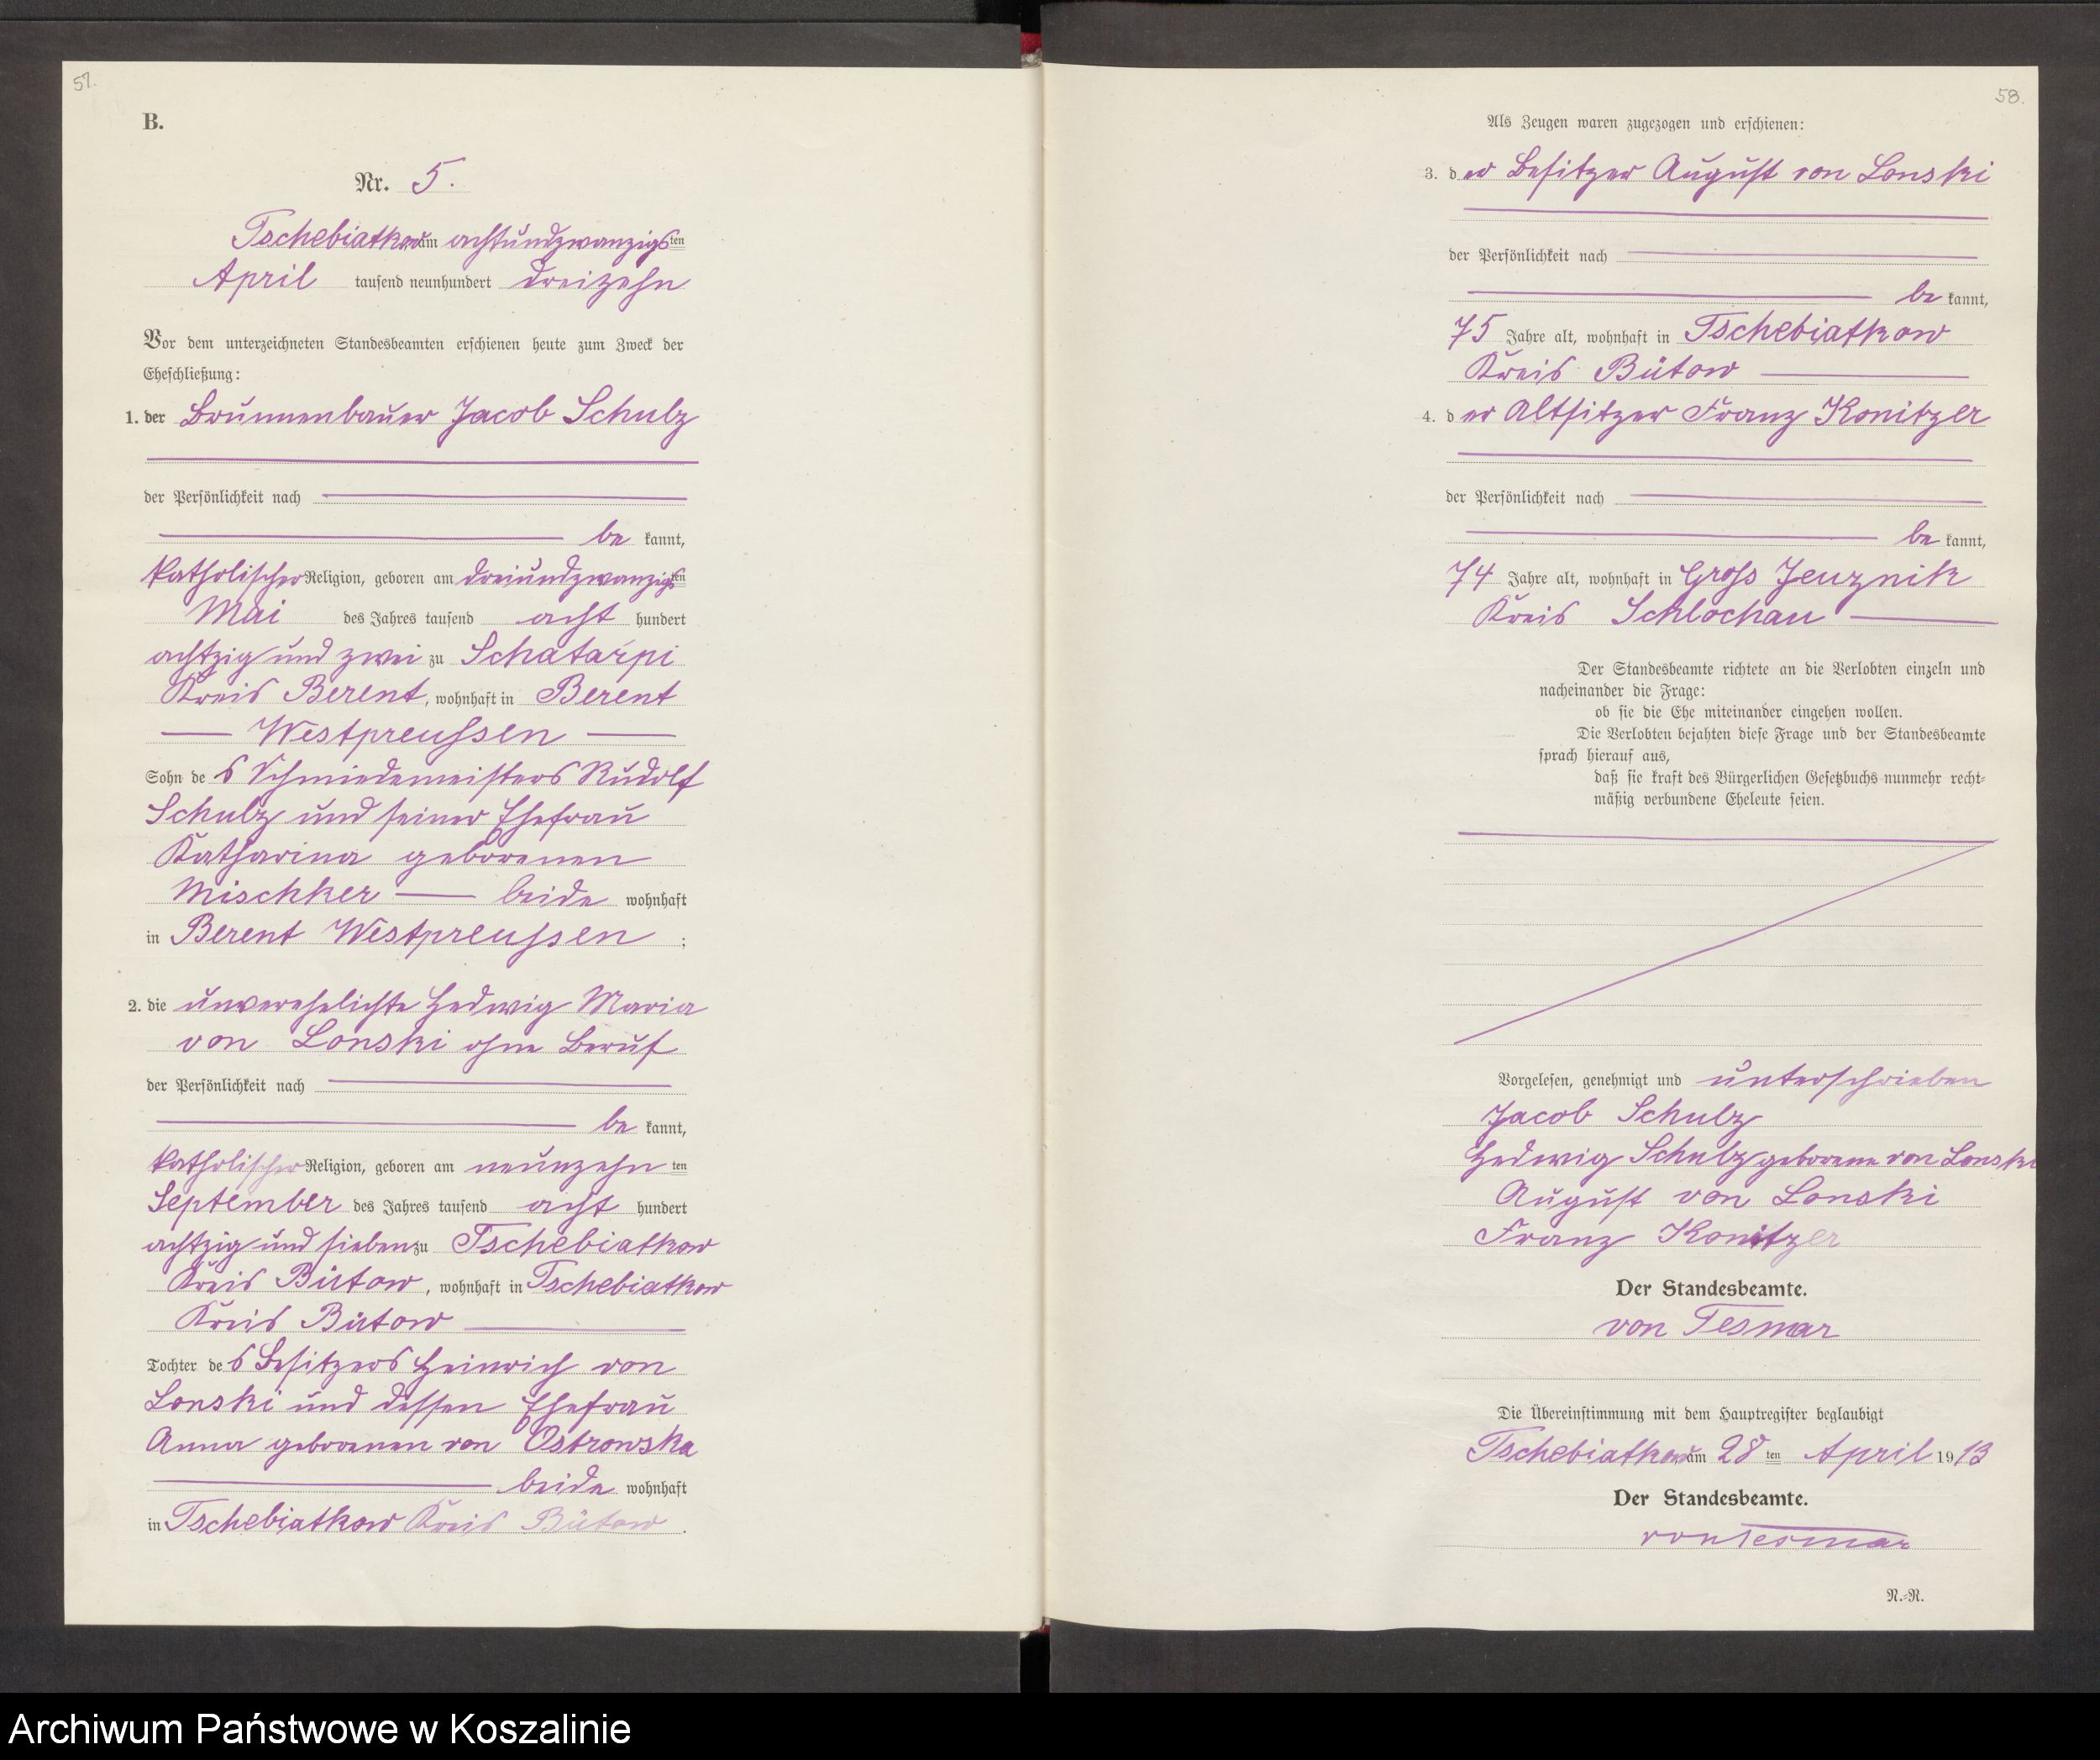 57.
B.
Nr. 5.
Tschebiatkow am achtundzwanzigsten
April tausend neunhundert dreizehn
Vor dem unterzeichneten Standesbeamten erschienen heute zum Zweck der
Eheschließung:
1. der Brunnenbauer Jacob Schulz
der Persönlichkeit nach
be kannt,
katholischer Religion, geboren am dreiundzwanzigsten
Mai des Jahres tausend acht hundert
achtzig und zwei zu Schatarpi
Kreis Berent, wohnhaft in Berent
Westpreussen
Sohn des Schmiedemeisters Rudolf
Schulz und seiner Ehefrau
Katharina geborenen
Mischker beide wohnhaft
in Berent Westpreussen ;
2. die unverehelichte Hedwig Maria
von Lonski ohne Beruf
der Persönlichkeit nach
be kannt,
katholischer Religion, geboren am neunzehn ten
September des Jahres tausend acht hundert
achtzig und sieben zu Tschebiatkow
Kreis Bütow, wohnhaft in Tschebiatkow
Kreis Bütow
Tochter des Besitzers Heinrich von
Lonski und dessen Ehefrau
Anna geborenen von Ostrowska
beide wohnhaft
in Tschebiatkow Kreis Bütow.
58.
Als Zeugen waren zugezogen und erschienen:
3. der Besitzer August von Lonski
der Persönlichkeit nach
be kannt,
75 Jahre alt, wohnhaft in Tschebiatkow
Kreis Bütow
4. der Altsitzer Franz Konitzer
der Persönlichkeit nach
be kannt,
74 Jahre alt, wohnhaft in Gross Jenznik
Kreis Schlochau
Der Standesbeamte richtete an die Verlobten einzeln und
nacheinander die Frage:
ob sie die Ehe miteinander eingehen wollen.
Die Verlobten bejahten diese Frage und der Standesbeamte
sprach hierauf aus,
daß sie kraft des Bürgerlichen Gesetzbuchs nunmehr recht-
mäßig verbundene Eheleute seien.
Vorgelesen, genehmigt und unterschrieben
Jacob Schulz
Hedwig Schulz geborene von Lonski
August von Lonski
Franz Konitzer
Der Standesbeamte.
von Tesmar
Die Übereinstimmung mit dem Hauptregister beglaubigt
Tschebiatkow am 28 ten April 1913
Der Standesbeamte.
von Tesmar
N.-R.
Archiwum Państwowe w Koszalinie